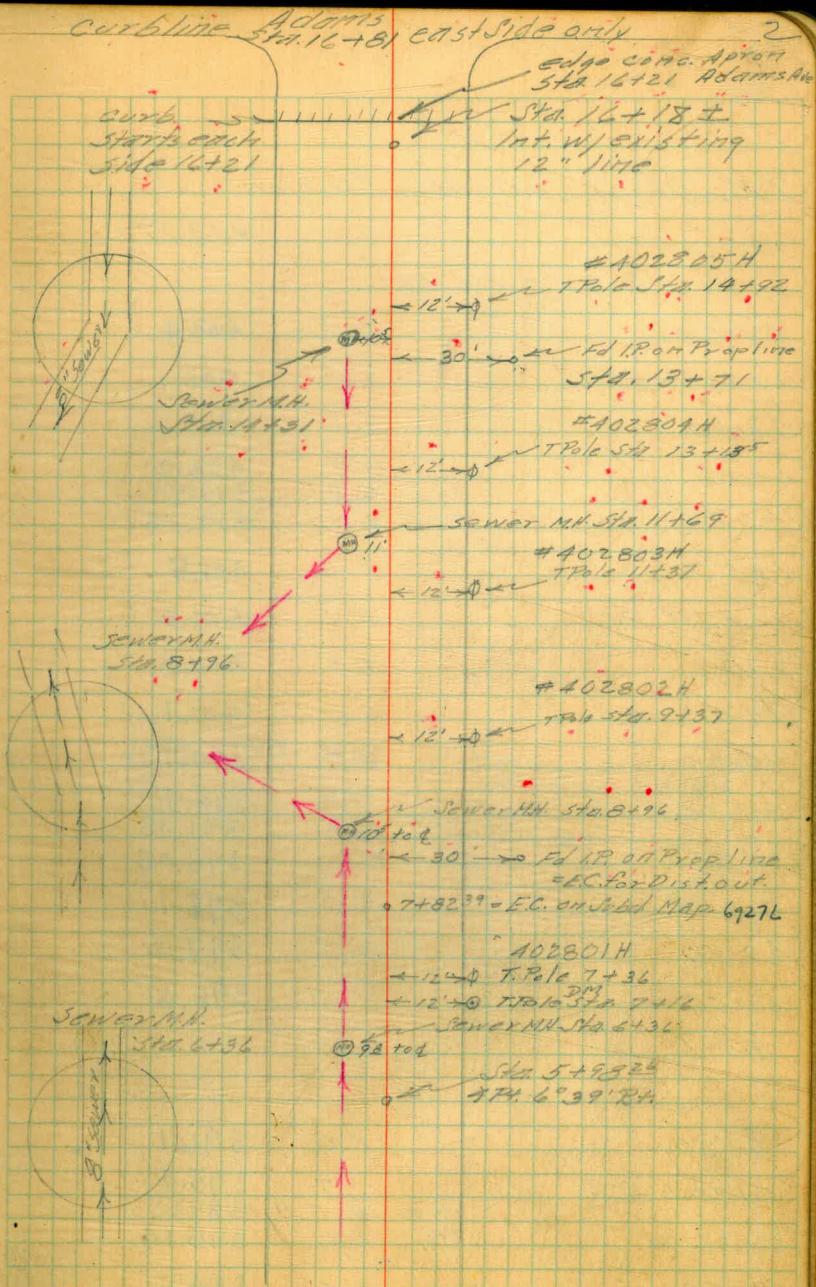 Curbline Adams east side only 2
Sta. 16+81
edge conc. Apron
Sta. 16+21 Adams Ave
curb
starts each
side 16+21
Sta. 16+18 ±
Int. w/ existing
12" line
#402805H
T Pole Sta. 14+92
12'
30'
Fd I.P. on Prop line
Sta. 13+71
8" Sewer
Sewer M.H.
Sta. 14+31
#402804H
T Pole Sta 13+18⁵
12'
Sewer M.H. Sta. 11+69
MH 11'
#402803H
T Pole 11+37
12'
Sewer M.H.
Sta. 8+96
#402802H
T Pole Sta. 9+37
12'
Sewer M.H. Sta. 8+96
to ₵
30'
Fd I.P. on Prop line
= E.C. for Dist. out
7+82³⁹ = E.C. on Subd Map 6927L
402801H
12' T. Pole 7+36
12' T. Pole DM Sta. 7+16
Sewer M.H.
Sta. 6+36
Sewer MH Sta 6+36
MH 9⁸ to ₵
Sta. 5+98²⁶
∡ Pt. 6° 39' Rt.
8" sewer